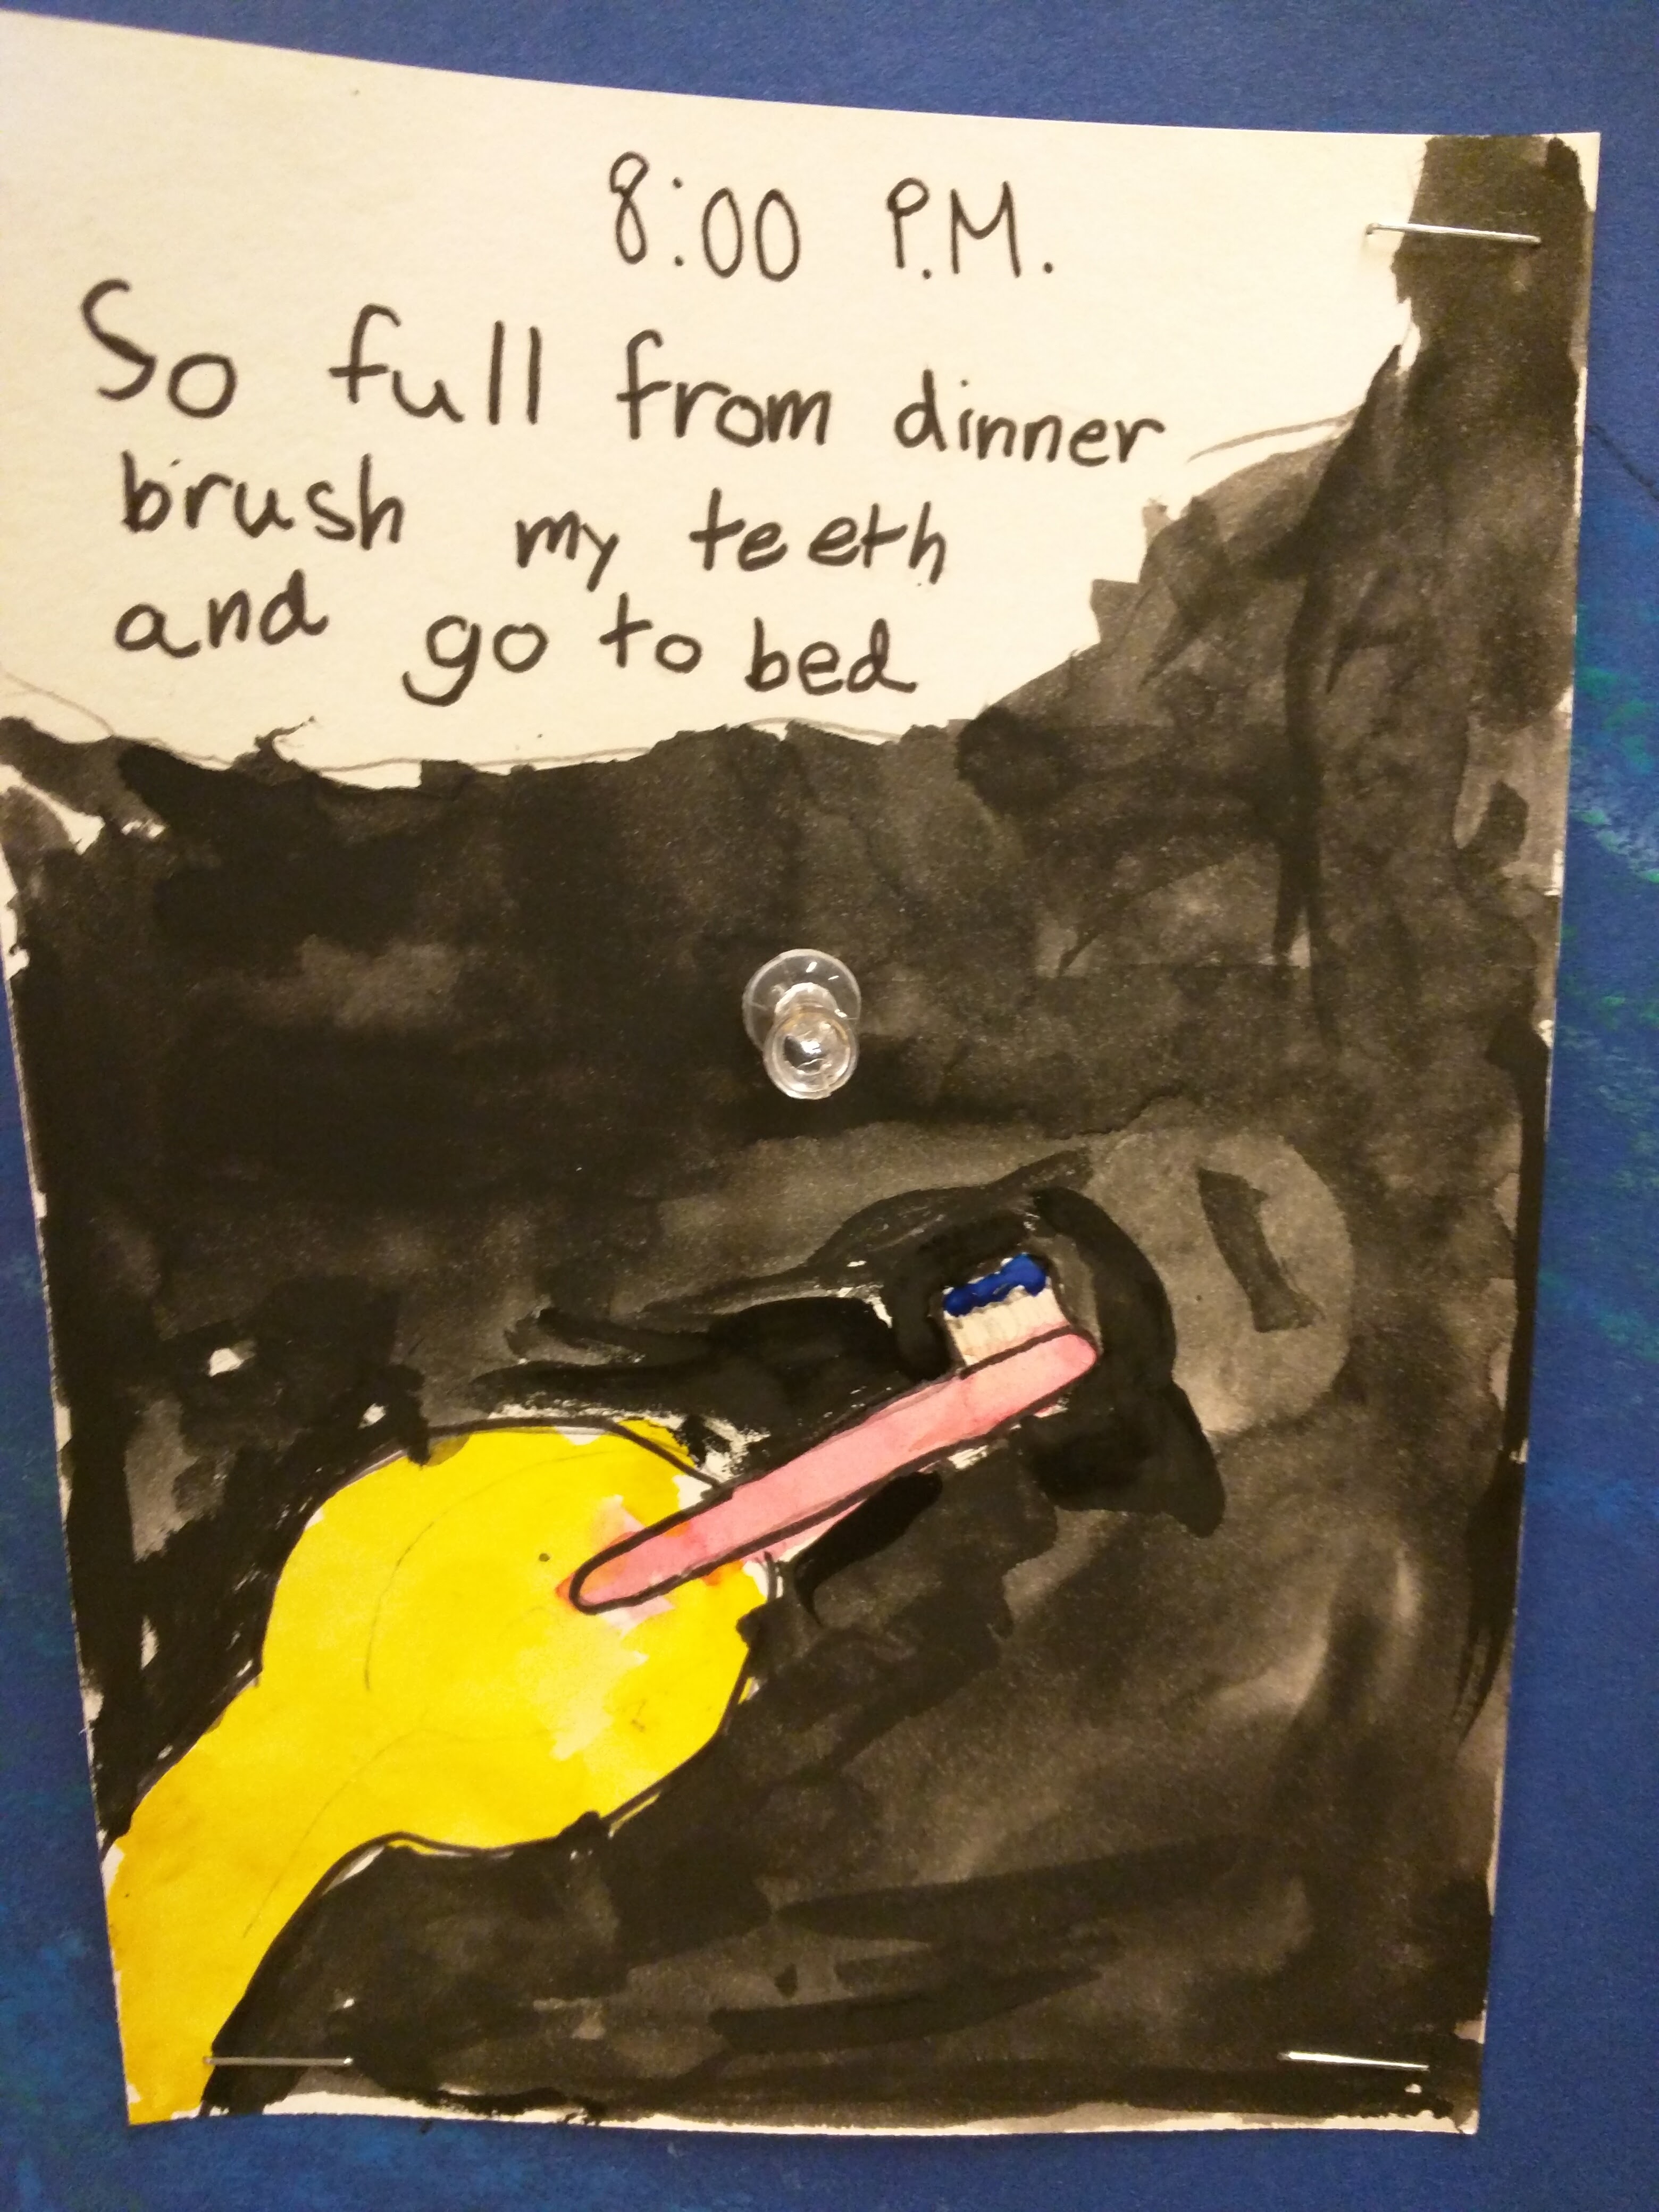 8:00 P.M.
So full from dinner
brush my teeth
and go to bed